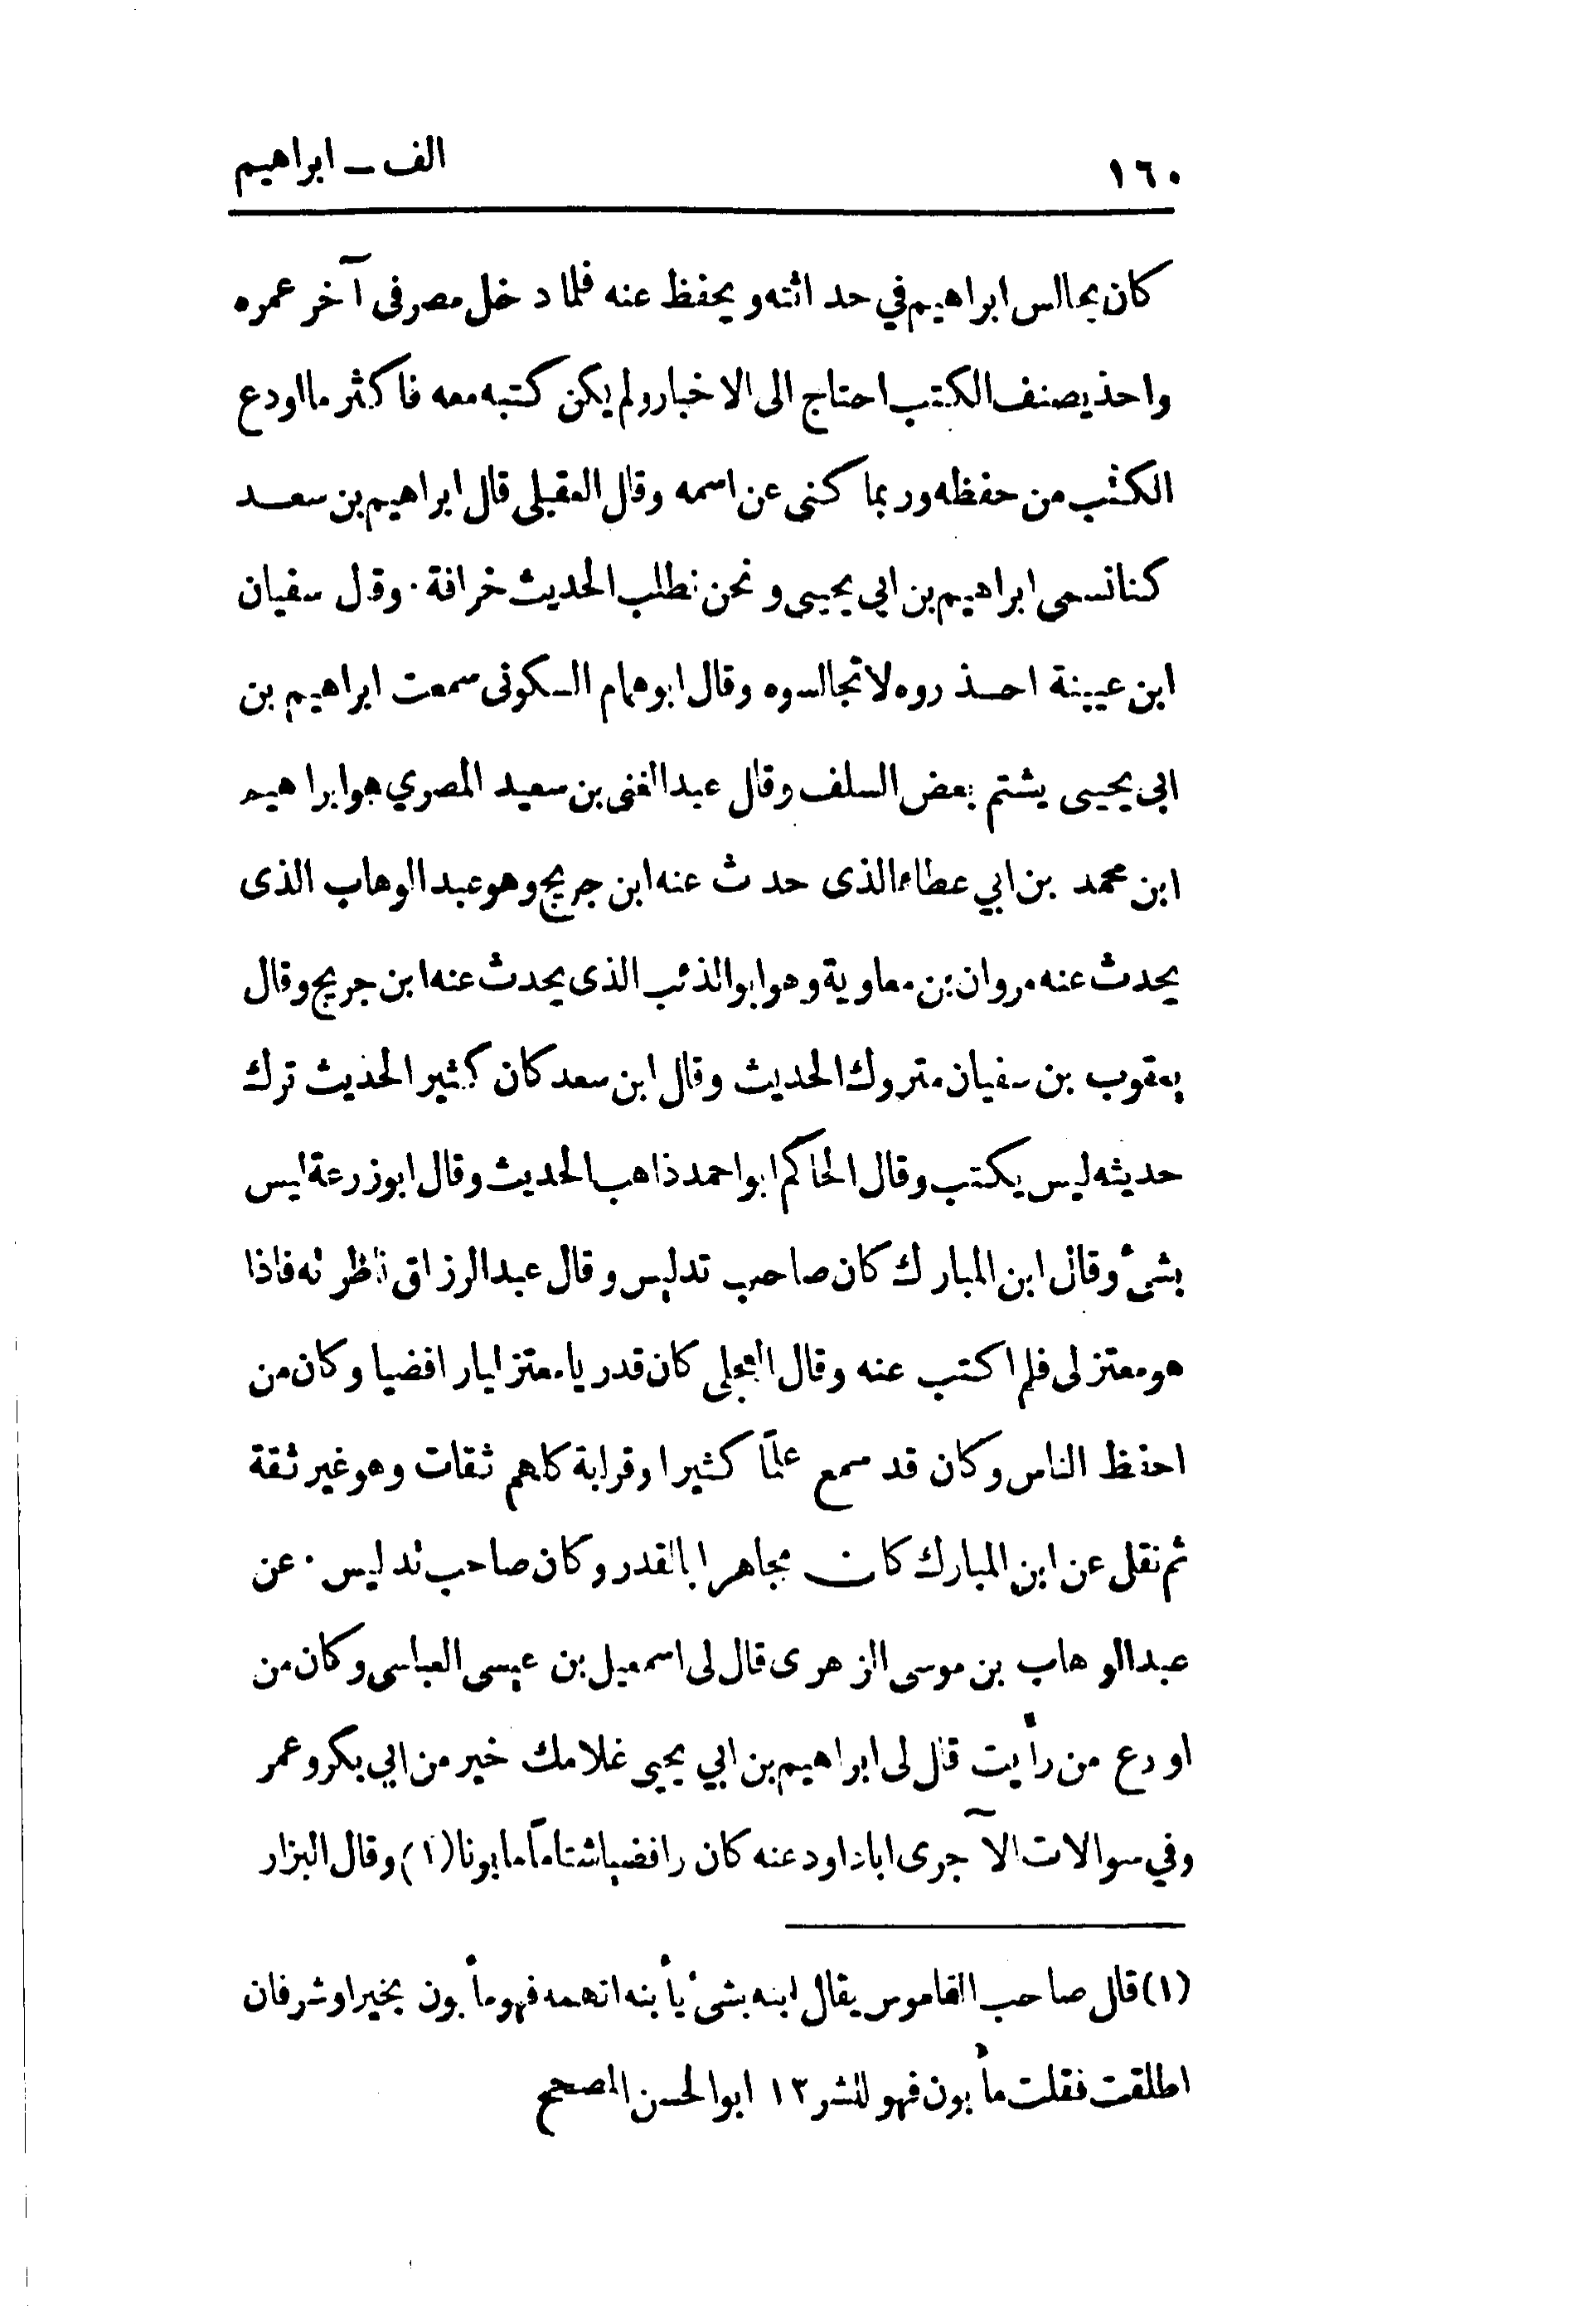 ١٦٠ الف ـ ابراهيم
كان يجالس ابراهيم في حداثته و يحفظ عنه فلما دخل مصر فى آخر عمره
واخذ يصنف الكتب احتاج الى الاخبار ولم يكن كتبه معه فاكثر ما اودع
الكتب من حفظه و ربما كنى عن اسمه وقال العقيلى قال ابراهيم بن سعد
كنا نسمى ابراهيم بن ابي يحيى و نحن نطلب الحديث خرافة · وقال سفيان
ابن عيينة احذروه لا تجالسوه وقال ابو همام السكونى سمعت ابراهيم بن
ابى يحيى يشتم بعض السلف وقال عبد الغنى بن سعيد المصري هو ابراهيم
ابن محمد بن ابي عطاء الذى حدث عنه ابن جريج وهو عبد الوهاب الذى
يحدث عنه مروان بن معاوية وهو ابو الذئب الذى يحدث عنه ابن جريج وقال
يعقوب بن سفيان متروك الحديث وقال ابن سعد كان كثير الحديث ترك
حديثه ليس يكتب وقال الحاكم ابو احمد ذاهب الحديث وقال ابو زرعة ليس
بشئ وقال ابن المبارك كان صاحب تدليس وقال عبد الرزاق ناظرته فاذا
هو معتزلى فلم اكتب عنه وقال العجلى كان قدريا معتزليا رافضيا وكان من
احفظ الناس وكان قد سمع علمًا كثيرا وقرابة كلهم ثقات وهو غير ثقة
ثم نقل عن ابن المبارك كان مجاهرا بالقدر وكان صاحب تدليس · عن
عبد الوهاب بن موسى الزهرى قال لى اسمعيل بن عيسى العباسى وكان من
اورع من رأيت قال لى ابراهيم بن ابي يحيى غلامك خير من ابي بكر وعمر
وفي سوالات الآجرى ابا داود عنه كان رافضيا شتامًا مابونا (١) وقال البزار
(١) قال صاحب القاموس يقال ابنه بشئ يأبنه اتهمه فهو مأبون بخير او شر فان
اطلقت فقلت مأبون فهو للشر ١٢ ابو الحسن المصحح